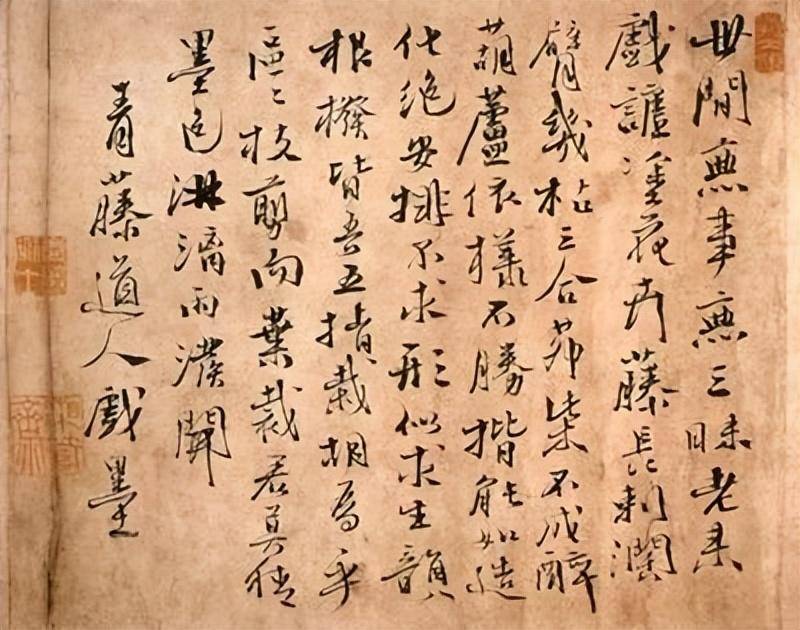 世間無事無三昧老来
戲謔塗花卉藤長刺闊
臂幾枯三合茆柴不成醉
葫蘆依樣不勝揩能如造
化絶安排不求形似求生韻
根撥皆吾五指栽胡為乎
區區枝剪而葉裁君莫猜
墨色淋漓雨潑開
青藤道人戲墨